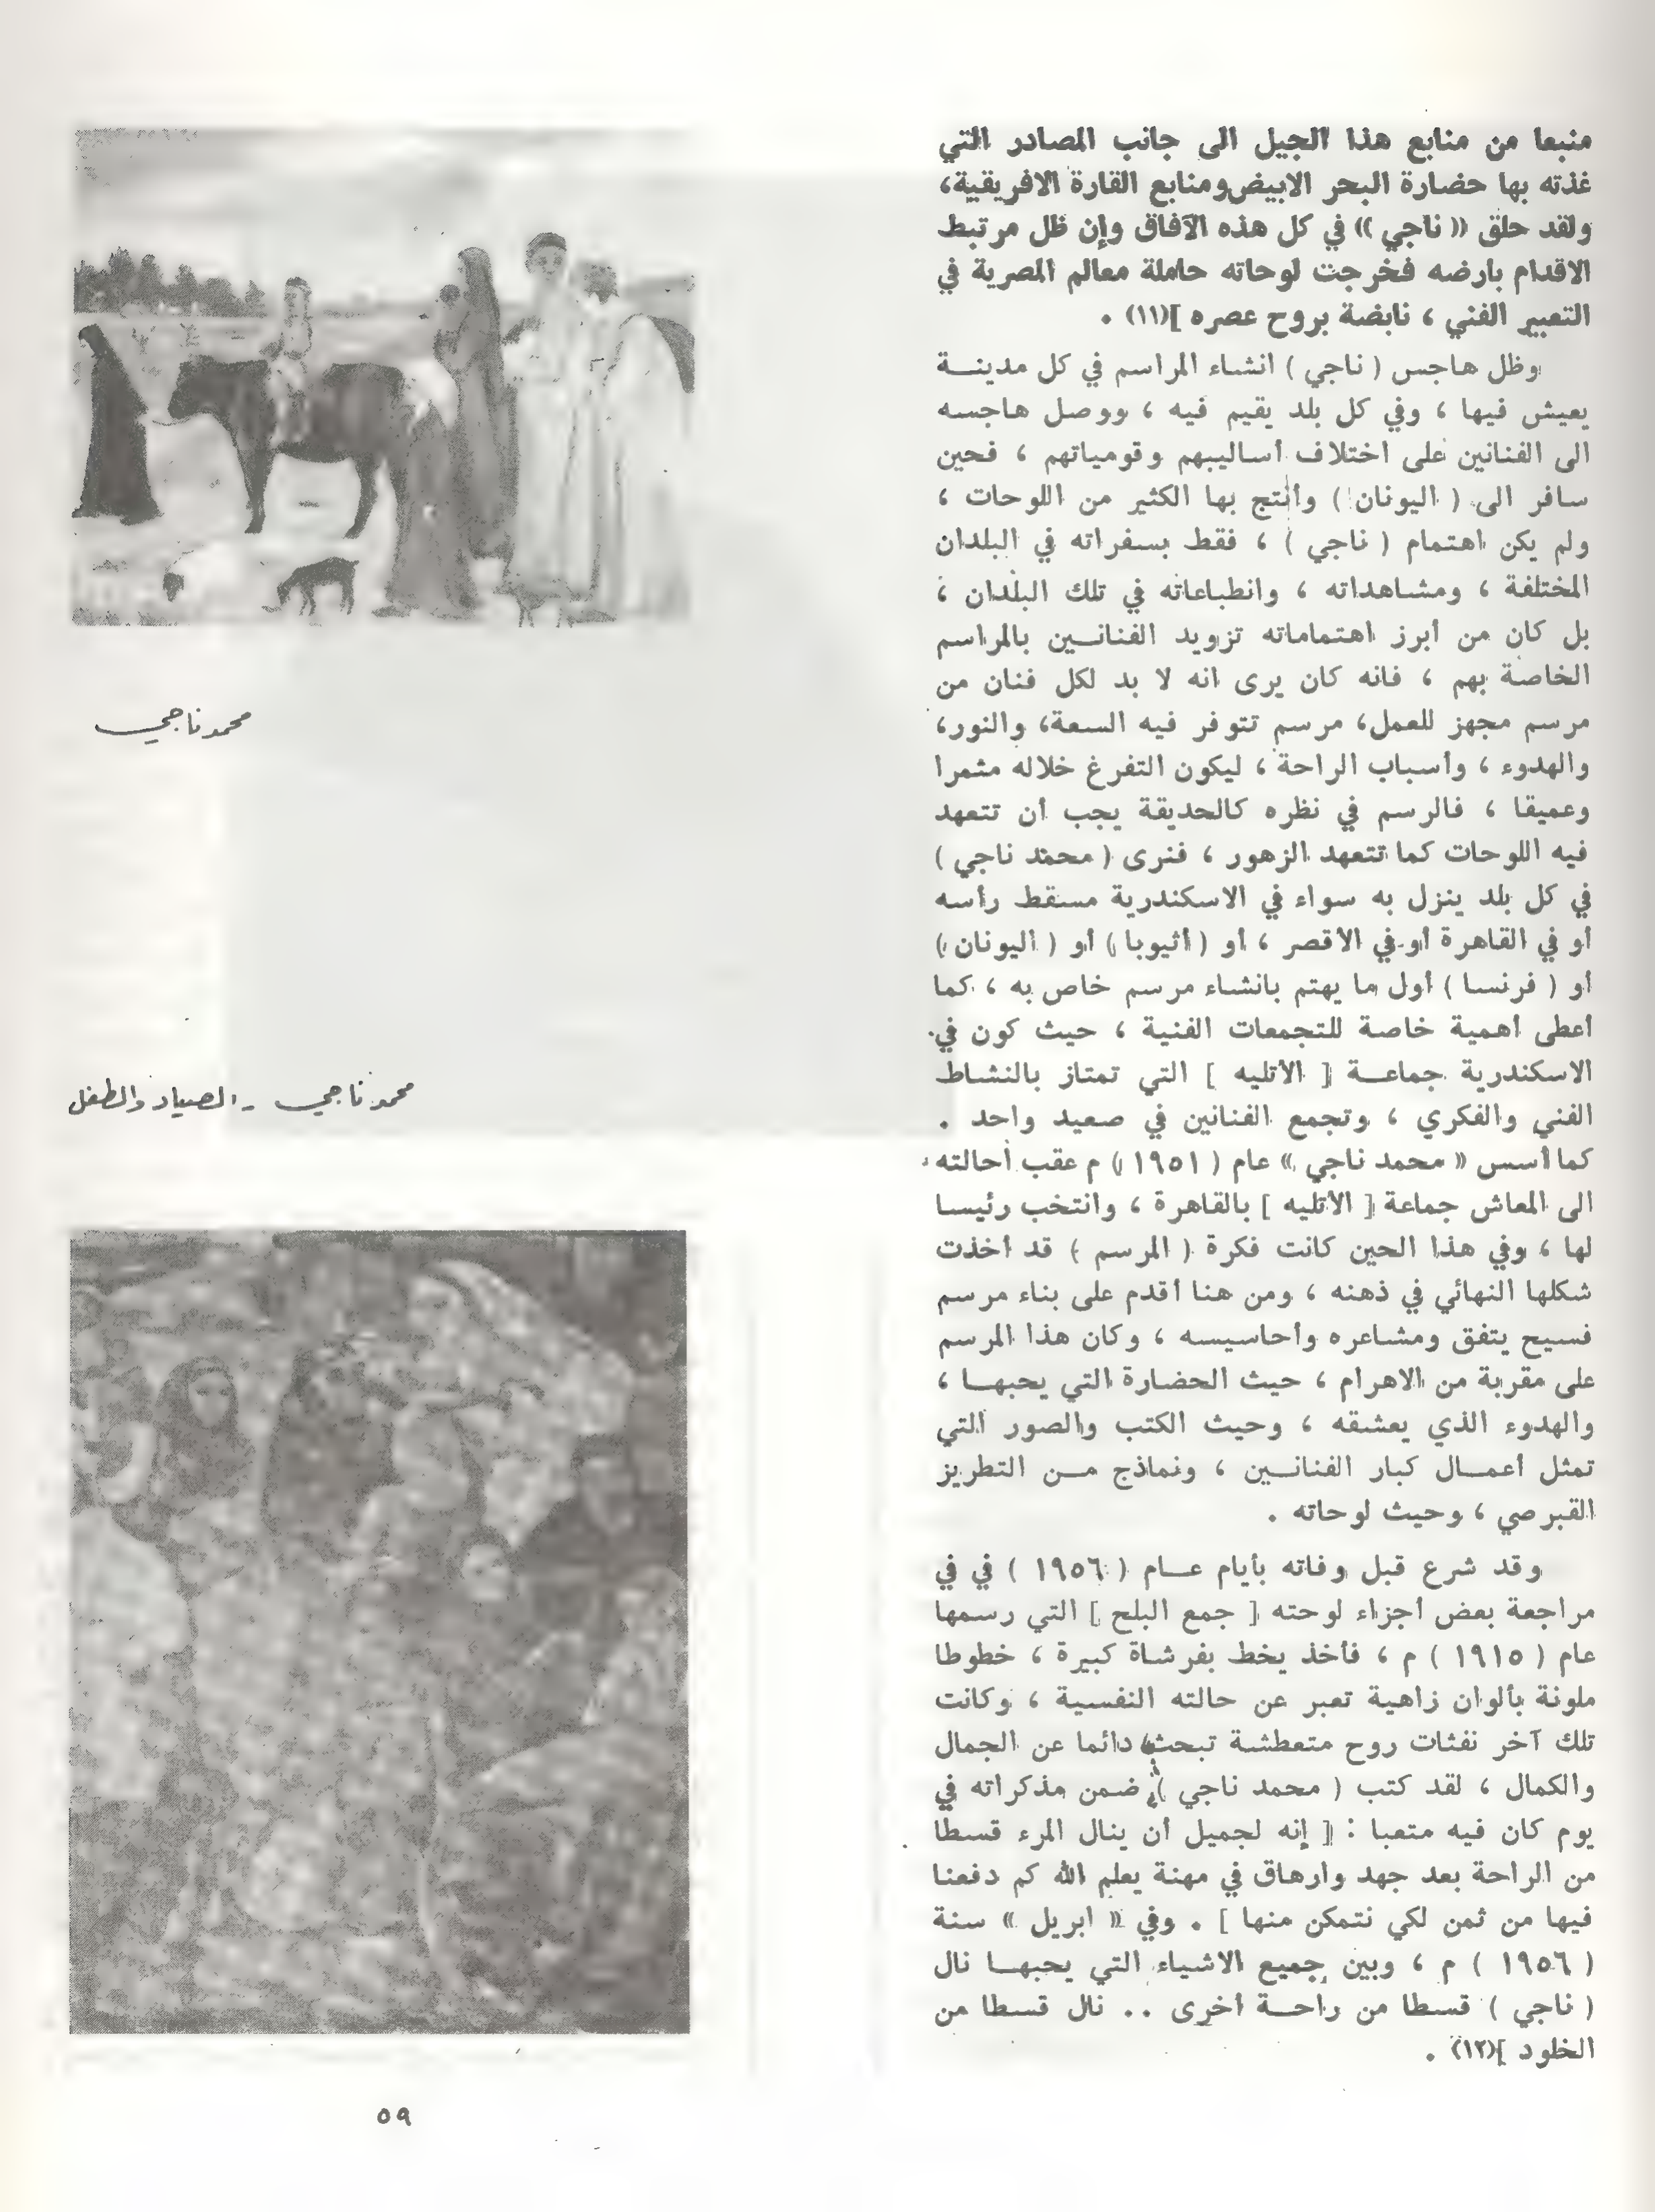 منبعا من منابع هذا الجيل الى جانب المصادر التي
غذته بها حضارة البحر الابيض ومنابع القارة الافريقية،
ولقد حلق « ناجي » في كل هذه الآفاق وإن ظل مرتبط
الاقدام بارضه فخرجت لوحاته حاملة معالم المصرية في
التعبير الفني ، نابضة بروح عصره ](١١) .
وظل هاجس ( ناجي ) انشاء المراسم في كل مدينــة
يعيش فيها ، وفي كل بلد يقيم فيه ، ووصل هاجسه
الى الفنانين على اختلاف أساليبهم وقومياتهم ، فحين
سافر الى ( اليونان ) وأنتج بها الكثير من اللوحات ،
ولم يكن اهتمام ( ناجي ) ، فقط بسفراته في البلدان
المختلفة ، ومشاهداته ، وانطباعاته في تلك البلدان ،
بل كان من أبرز اهتماماته تزويد الفنانــين بالمراسم
الخاصة بهم ، فانه كان يرى انه لا بد لكل فنان من
مرسم مجهز للعمل، مرسم تتوفر فيه السعة، والنور،
والهدوء ، وأسباب الراحة ، ليكون التفرغ خلاله مثمرا
وعميقا ، فالرسم في نظره كالحديقة يجب أن تتعهد
فيه اللوحات كما تتعهد الزهور ، فنرى ( محمد ناجي )
في كل بلد ينزل به سواء في الاسكندرية مسقط رأسه
أو في القاهرة أو في الأقصر ، أو ( أثيوبا ) أو ( اليونان )
أو ( فرنسا ) أول ما يهتم بانشاء مرسم خاص به ، كما
أعطى أهمية خاصة للتجمعات الفنية ، حيث كون في
الاسكندرية جماعــة [ الأتليه ] التي تمتاز بالنشاط
الفني والفكري ، وتجمع الفنانين في صعيد واحد .
كما أسس « محمد ناجي » عام ( ١٩٥١ ) م عقب أحالته
الى المعاش جماعة [ الأتليه ] بالقاهرة ، وانتخب رئيسا
لها ، وفي هذا الحين كانت فكرة ( المرسم ) قد أخذت
شكلها النهائي في ذهنه ، ومن هنا أقدم على بناء مرسم
فسيح يتفق ومشاعره وأحاسيسه ، وكان هذا المرسم
على مقربة من الاهرام ، حيث الحضارة التي يحبهــا ،
والهدوء الذي يعشقه ، وحيث الكتب والصور التي
تمثل أعمــال كبار الفنانــين ، ونماذج مــن التطريز
القبرصي ، وحيث لوحاته .
وقد شرع قبل وفاته بأيام عــام ( ١٩٥٦ ) في في
مراجعة بعض أجزاء لوحته [ جمع البلح ] التي رسمها
عام ( ١٩١٥ ) م ، فأخذ يخط بفرشاة كبيرة ، خطوطا
ملونة بألوان زاهية تعبر عن حالته النفسية ، وكانت
تلك آخر نفثات روح متعطشة تبحث دائما عن الجمال
والكمال ، لقد كتب ( محمد ناجي ) ضمن مذكراته في
يوم كان فيه متعبا : [ إنه لجميل أن ينال المرء قسطا
من الراحة بعد جهد وارهاق في مهنة يعلم الله كم دفعنا
فيها من ثمن لكي نتمكن منها ] . وفي « ابريل » سنة
( ١٩٥٦ ) م ، وبين جميع الاشياء التي يحبهــا نال
( ناجي ) قسطا من راحــة أخرى .. نال قسطا من
الخلود ](١٢) .
محمد ناجي
محمد ناجي - الصياد والطفل
٥٩